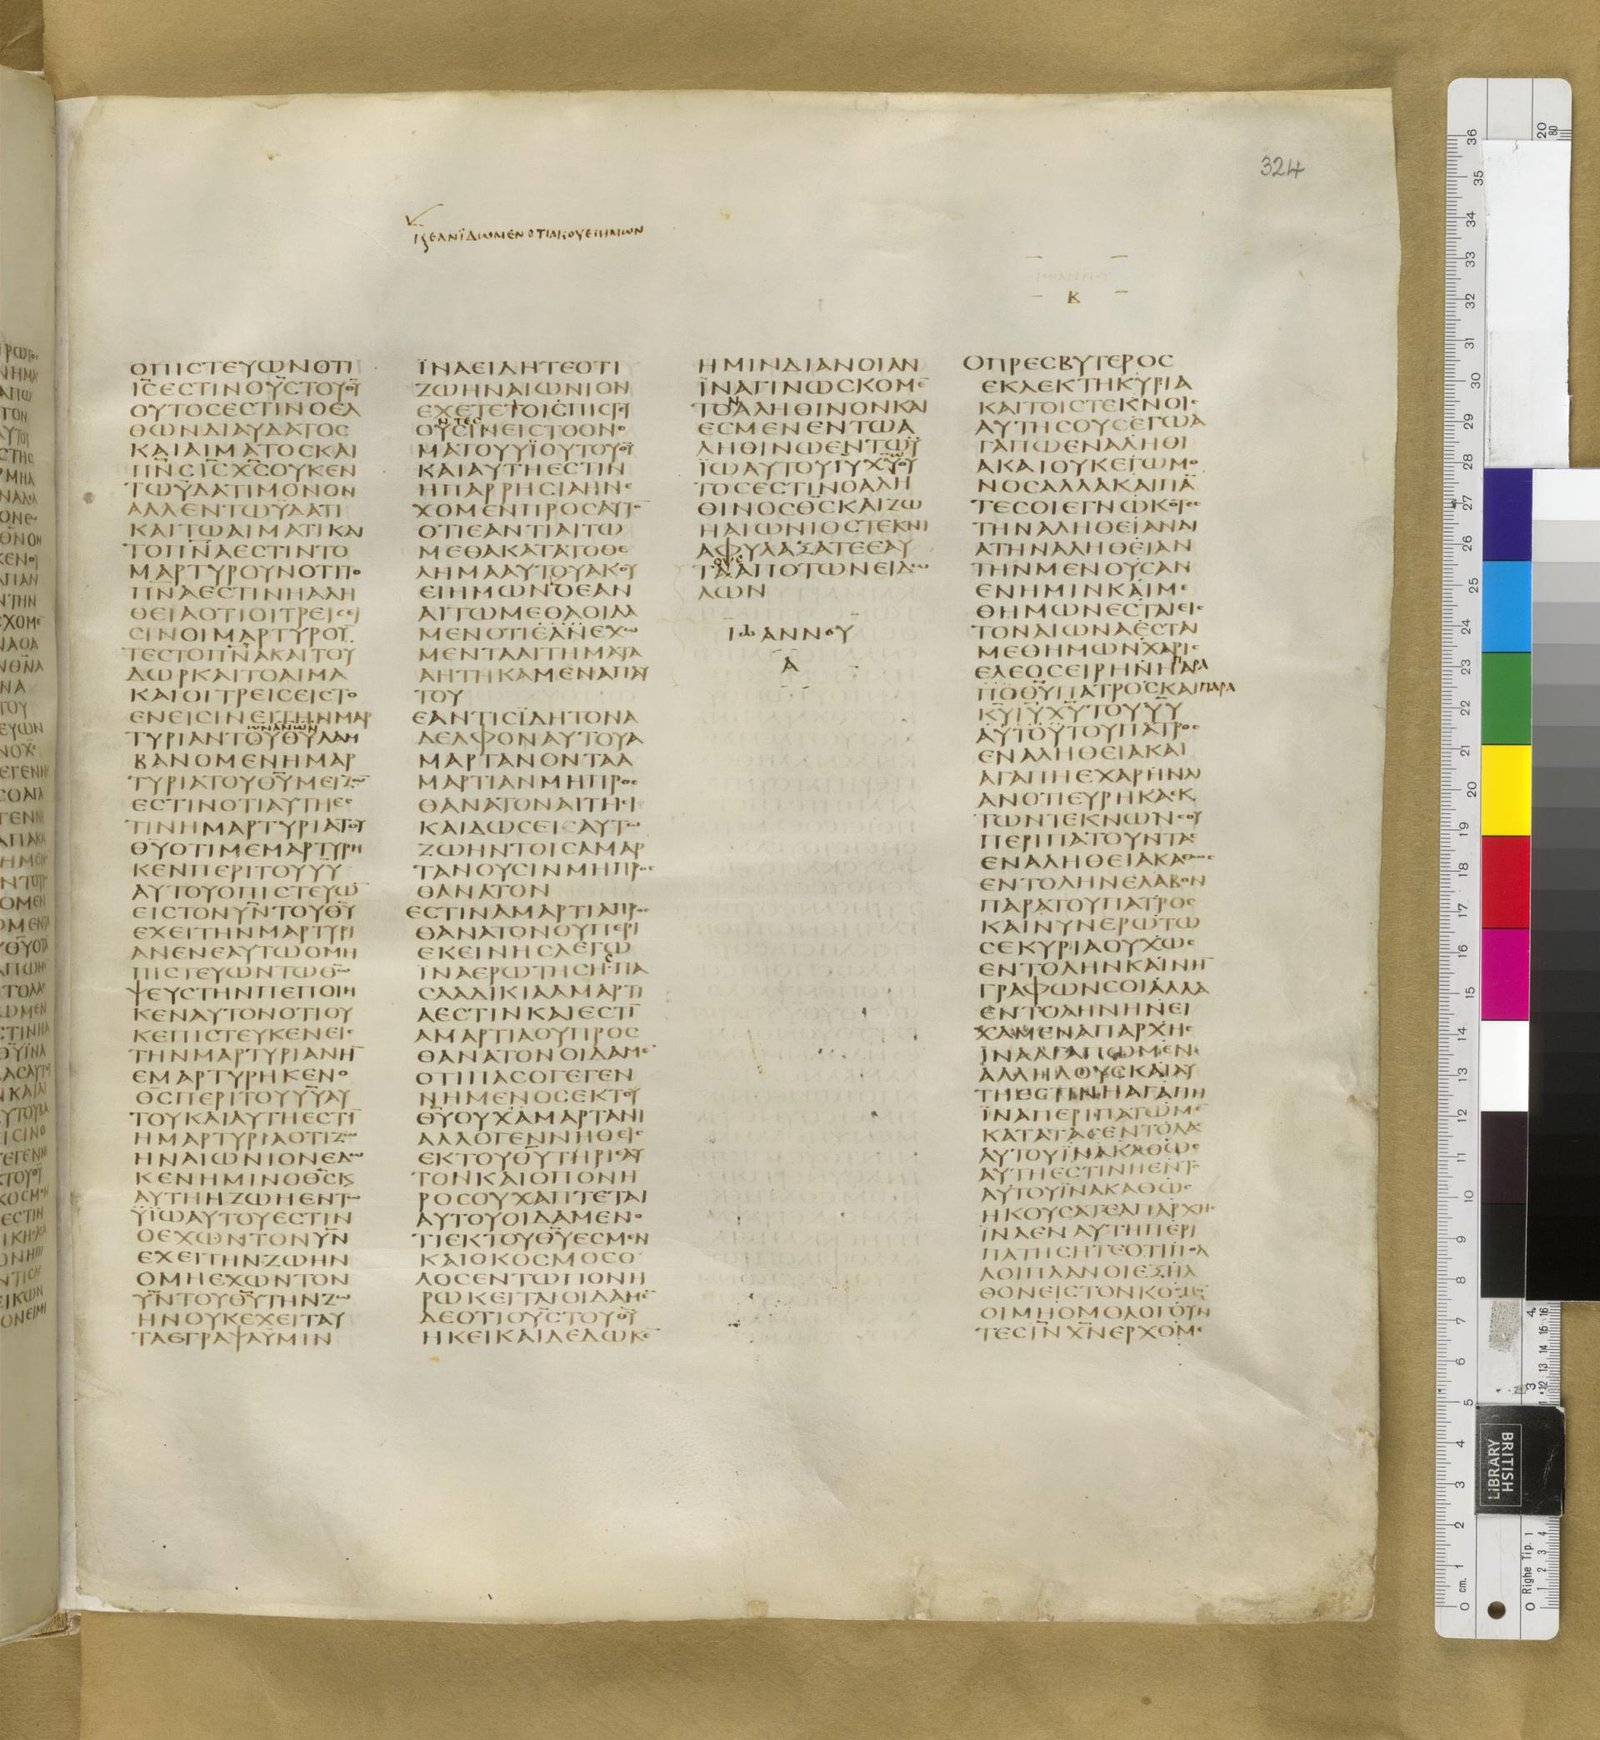 324
ΚΕΑΝΪΔΩΜΕΝΟΤΙΑΚΟΥΕΙΗΜΩΝ
Β
ΟΠΙCΤΕΥΩΝΟΤΙ
ΙC̅ΕCΤΙΝΟΥ̅CΤΟΥΘ̅Υ̅
ΟΥΤΟCΕCΤΙΝΟΕΛ
ΘΩΝΔΙΑΥΔΑΤΟC
ΚΑΙΑΙΜΑΤΟCΚΑΙ
ΠΝ̅CΙ̅C̅Χ̅C̅ΟΥΚΕΝ
ΤΩΫΔΑΤΙΜΟΝΟΝ
ΑΛΛΕΝΤΩΥΔΑΤΙ
ΚΑΙΤΩΑΙΜΑΤΙΚΑΙ
ΤΟΠΝ̅ΑΕCΤΙΝΤΟ
ΜΑΡΤΥΡΟΥΝΟΤΙΤΟ
ΠΝ̅ΑΕCΤΙΝΗΑΛΗ
ΘΕΙΑΟΤΙΟΙΤΡΕΙCΕΙ
CΙΝΟΙΜΑΡΤΥΡΟΥ̅
ΤΕCΤΟΠΝ̅ΑΚΑΙΤΟΥ
ΔΩΡΚΑΙΤΟΑΙΜΑ
ΚΑΙΟΙΤΡΕΙCΕΙCΤΟ
ΕΝΕΙCΙΝΕΙΤΗΝΜΑΡ
ΤΩΝΑΝΩΝ
ΤΥΡΙΑΝΤΟΥΘ̅Υ̅ΛΑΜ
ΒΑΝΟΜΕΝΗΜΑΡ
ΤΥΡΙΑΤΟΥΘ̅Υ̅ΜΕΙΖΩ̅
ΕCΤΙΝΟΤΙΑΥΤΗΕC
ΤΙΝΗΜΑΡΤΥΡΙΑΤΟΥ
Θ̅Υ̅ΟΤΙΜΕΜΑΡΤΥΡΗ
ΚΕΝΠΕΡΙΤΟΥΥ̅Υ̅
ΑΥΤΟΥΟΠΙCΤΕΥΩ̅
ΕΙCΤΟΝΥ̅Ν̅ΤΟΥΘ̅Υ̅
ΕΧΕΙΤΗΝΜΑΡΤΥΡΙ
ΑΝΕΝΕΑΥΤΩΟΜΗ
ΠΙCΤΕΥΩΝΤΩΘ̅Ω̅
ΨΕΥCΤΗΝΠΕΠΟΙΗ
ΚΕΝΑΥΤΟΝΟΤΙΟΥ
ΚΕΠΙCΤΕΥΚΕΝΕΙC
ΤΗΝΜΑΡΤΥΡΙΑΝΗ̅
ΕΜΑΡΤΥΡΗΚΕΝΟ
Θ̅C̅ΠΕΡΙΤΟΥΥ̅Υ̅ΑΥ
ΤΟΥΚΑΙΑΥΤΗΕCΤΙ̅
ΗΜΑΡΤΥΡΙΑΟΤΙΖΩ
ΗΝΑΙΩΝΙΟΝΕΔΩ
ΚΕΝΗΜΙΝΟΘ̅C̅Κ
ΑΥΤΗΗΖΩΗΕΝΤΩ
ΫΙΩΑΥΤΟΥΕCΤΙΝ
ΟΕΧΩΝΤΟΝΥ̅Ν̅
ΕΧΕΙΤΗΝΖΩΗΝ
ΟΜΗΕΧΩΝΤΟΝ
Υ̅Ν̅ΤΟΥΘ̅Υ̅ΤΗΝΖΩ
ΗΝΟΥΚΕΧΕΙΤΑΥ
ΤΑΕΓΡΑΨΑΥΜΙΝ
ΪΝΑΕΙΔΗΤΕΟΤΙ
ΖΩΗΝΑΙΩΝΙΟΝ
ΕΧΕΤΕΤΟΙCΠΙCΤΕΥ
ΟΥCΙΝΕΙCΤΟΟΝΟ
ΜΑΤΟΥΥΪΟΥΤΟΥΘ̅Υ̅
ΚΑΙΑΥΤΗΕCΤΙΝ
ΗΠΑΡΡΗCΙΑΗΝΕ
ΧΟΜΕΝΠΡΟCΑΥΤΟ̅
ΟΤΙΕΑΝΤΙΑΙΤΩ
ΜΕΘΑΚΑΤΑΤΟΘΕ
ΛΗΜΑΑΥΤΟΥΑΚΟΥ
ΕΙΗΜΩΝΟΕΑΝ
ΑΙΤΩΜΕΘΑΟΙΔΑ
ΜΕΝΟΤΙΕΑΝΕΧΩ
ΜΕΝΤΑΑΙΤΗΜΑΤΑ
ΑΗΤΗΚΑΜΕΝΑΠΑΥ
ΤΟΥ
ΕΑΝΤΙCΪΔΗΤΟΝΑ
ΔΕΛΦΟΝΑΥΤΟΥΑ
ΜΑΡΤΑΝΟΝΤΑΑ
ΜΑΡΤΙΑΝΜΗΠΡΟC
ΘΑΝΑΤΟΝΑΙΤΗCΙ
ΚΑΙΔΩCΕΙCΑΥΤΩ
ΖΩΗΝΤΟΙCΑΜΑΡ
ΤΑΝΟΥCΙΝΜΗΠΡΟC
ΘΑΝΑΤΟΝ
ΕCΤΙΝΑΜΑΡΤΙΑΠΡΟC
ΘΑΝΑΤΟΝΟΥΠΕΡΙ
ΕΚΕΙΝΗCΛΕΓΩ
ΪΝΑΕΡΩΤΗCΗΠΑ
CΑΑΔΙΚΙΑΑΜΑΡΤΙ
ΑΕCΤΙΝΚΑΙΕCΤΙ̅
ΑΜΑΡΤΙΑΟΥΠΡΟC
ΘΑΝΑΤΟΝΟΙΔΑΜΕ̅
ΟΤΙΠΑCΟΓΕΓΕΝ
ΝΗΜΕΝΟCΕΚΤΟΥ
Θ̅Υ̅ΟΥΧΑΜΑΡΤΑΝΙ
ΑΛΛΟΓΕΝΝΗΘΕΙC
ΕΚΤΟΥΘ̅Υ̅ΤΗΡΙΕΑΥ
ΤΟΝΚΑΙΟΠΟΝΗ
ΡΟCΟΥΧΑΠΤΕΤΑΙ
ΑΥΤΟΥΟΙΔΑΜΕΝΟ
ΤΙΕΚΤΟΥΘ̅Υ̅ΕCΜΕΝ
ΚΑΙΟΚΟCΜΟCΟ
ΛΟCΕΝΤΩΠΟΝΗ
ΡΩΚΕΙΤΑΙΟΙΔΑΜΕ̅
ΔΕΟΤΙΟΥ̅C̅ΤΟΥΘ̅Υ̅
ΗΚΕΙΚΑΙΔΕΔΩΚΕ̅
ΗΜΙΝΔΙΑΝΟΙΑΝ
ΪΝΑΓΙΝΩCΚΟΜΕ̅
ΤΟΑΛΗΘΙΝΟΝΚΑΙ
ΕCΜΕΝΕΝΤΩΑ
ΛΗΘΙΝΩΕΝΤΩΫ
ΪΩΑΥΤΟΥΙ̅Υ̅Χ̅Υ̅ΟΥ
ΤΟCΕCΤΙΝΟΑΛΗ
ΘΙΝΟCΘ̅C̅ΚΑΙΖΩ
ΗΑΙΩΝΙΟCΤΕΚΝΙ
ΑΦΥΛΑΞΑΤΕΕΑΥ
ΤΑΑΠΟΤΩΝΕΙΔΩ
ΛΩΝ
ΙΩΑΝΝΟΥ
Α
ΟΠΡΕCΒΥΤΕΡΟC
ΕΚΛΕΚΤΗΚΥΡΙΑ
ΚΑΙΤΟΙCΤΕΚΝΟΙC
ΑΥΤΗCΟΥCΕΓΩΑ
ΓΑΠΩΕΝΑΛΗΘΙ
ΑΚΑΙΟΥΚΕΓΩΜΟ
ΝΟCΑΛΛΑΚΑΙΠΑ̅
ΤΕCΟΙΕΓΝΩΚΟΤΕC
ΤΗΝΑΛΗΘΕΙΑΝΔΙ
ΑΤΗΝΑΛΗΘΕΙΑΝ
ΤΗΝΜΕΝΟΥCΑΝ
ΕΝΗΜΙΝΚΑΙΜΕ
ΘΗΜΩΝΕCΤΑΙΕΙC
ΤΟΝΑΙΩΝΑΕCΤΑΙ
ΜΕΘΗΜΩΝΧΑΡΙC
ΕΛΕΟCΕΙΡΗΝΗΠΑΡΑ
ΠΟΘ̅Υ̅ΠΑΤΡΟCΚΑΙΠΑΡΑ
Κ̅Υ̅Ι̅Υ̅Χ̅Υ̅ΤΟΥΥ̅Υ̅
ΑΥΤΟΥΤΟΥΠΑΤΡΟC
ΕΝΑΛΗΘΕΙΑΚΑΙ
ΑΓΑΠΗΕΧΑΡΗΝΛΙ
ΑΝΟΤΙΕΥΡΗΚΑΕΚ
ΤΩΝΤΕΚΝΩΝCΟΥ
ΠΕΡΙΠΑΤΟΥΝΤΑC
ΕΝΑΛΗΘΕΙΑΚΑΘΩC
ΕΝΤΟΛΗΝΕΛΑΒΟΝ
ΠΑΡΑΤΟΥΠΑΤΡΟC
ΚΑΙΝΥΝΕΡΩΤΩ
CΕΚΥΡΙΑΟΥΧΩC
ΕΝΤΟΛΗΝΚΑΙΝΗ̅
ΓΡΑΦΩΝCΟΙΑΛΛΑ
ΕΝΤΟΛΗΝΗΝΕΙ
ΧΑΜΕΝΑΠΑΡΧΗC
ΪΝΑΑΓΑΠΩΜΕΝ
ΑΛΛΗΛΟΥCΚΑΙΑΥ
ΤΗΕCΤΙΝΗΑΓΑΠΗ
ΪΝΑΠΕΡΙΠΑΤΩΜΕ̅
ΚΑΤΑΤΑCΕΝΤΟΛΑC
ΑΥΤΟΥΪΝΑΚΑΘΩC
ΑΥΤΗΕCΤΙΝΗΕΝΤΟ
ΑΥΤΟΥΪΝΑΚΑΘΩC
ΗΚΟΥCΑΤΕΑΠΑΡΧΗC
ΪΝΑΕΝΑΥΤΗΠΕΡΙ
ΠΑΤΗCΗΤΕΟΤΙΠΟΛ
ΛΟΙΠΛΑΝΟΙΕΞΗΛ
ΘΟΝΕΙCΤΟΝΚΟCΜΟ̅
ΟΙΜΗΟΜΟΛΟΓΟΥΝ
ΤΕCΙ̅Ν̅Χ̅Ν̅ΕΡΧΟΜΕ
BRITISH
LIBRARY